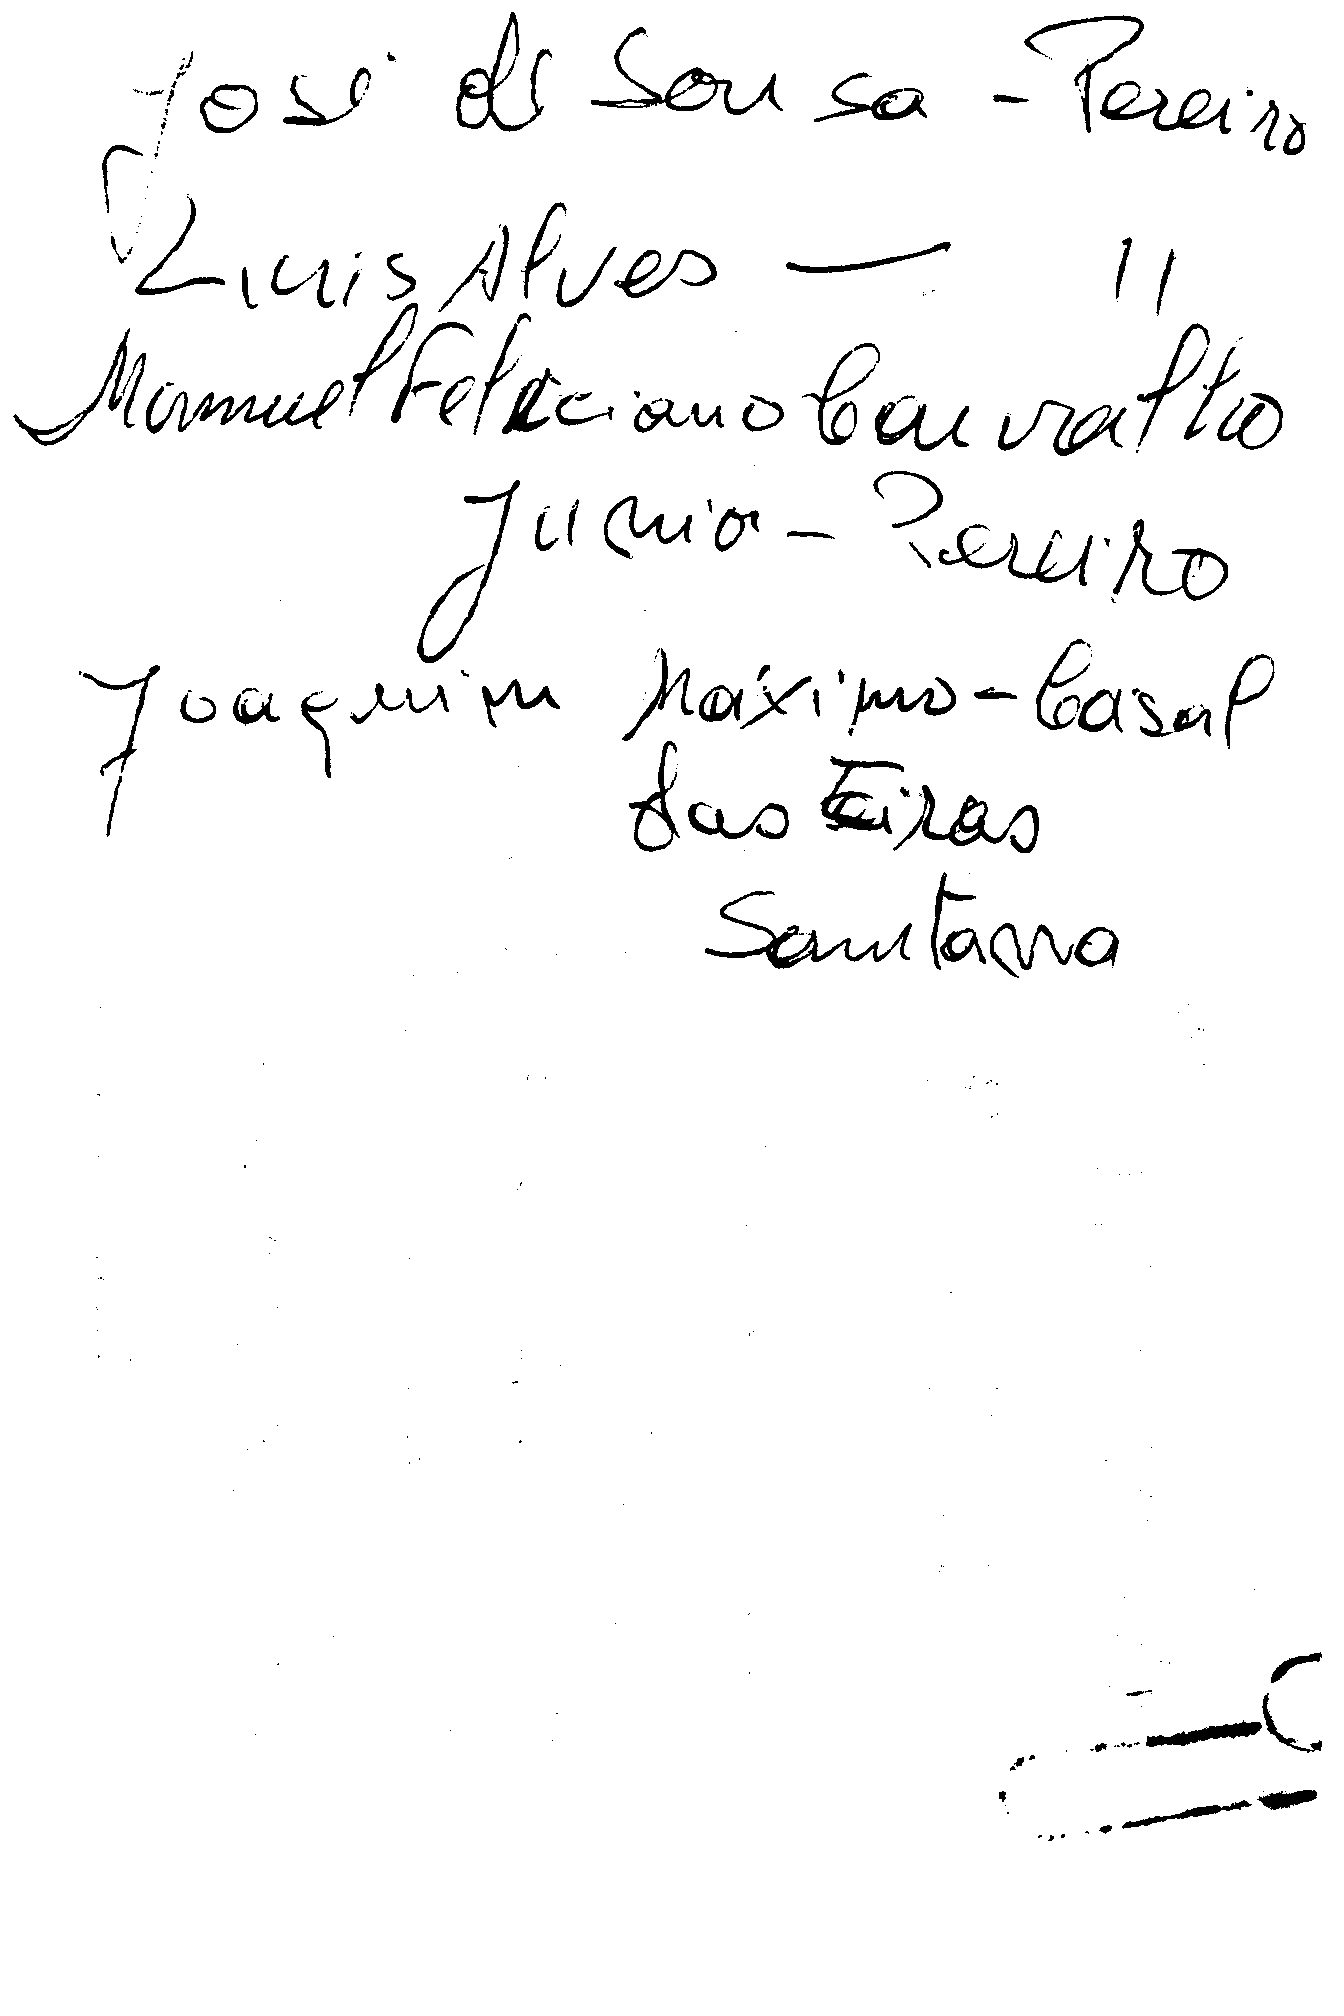 José de Sousa - Pereiro
Luis Alves — "
Manuel Feliciano Carvalho
Junior - Pereiro
Joaquim Máximo - Casal
das Eiras
Santana